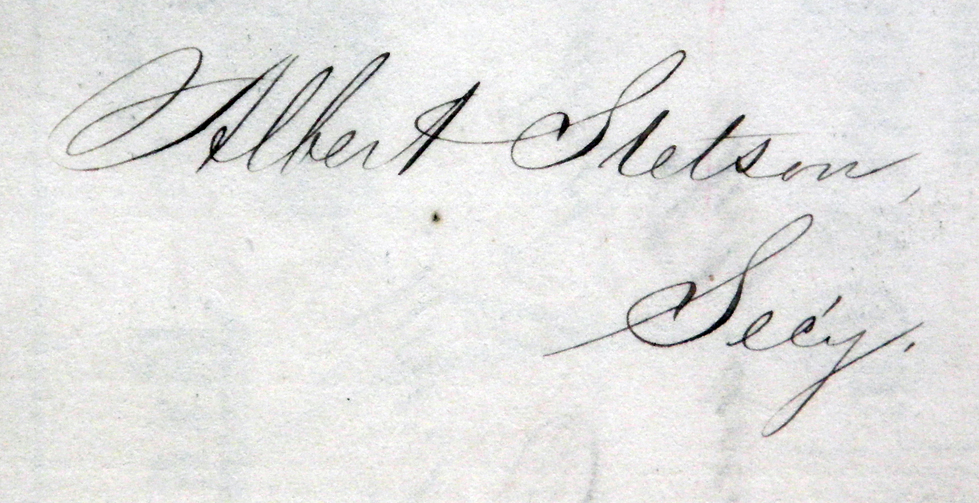 Albert Stetson,
Sec'y.